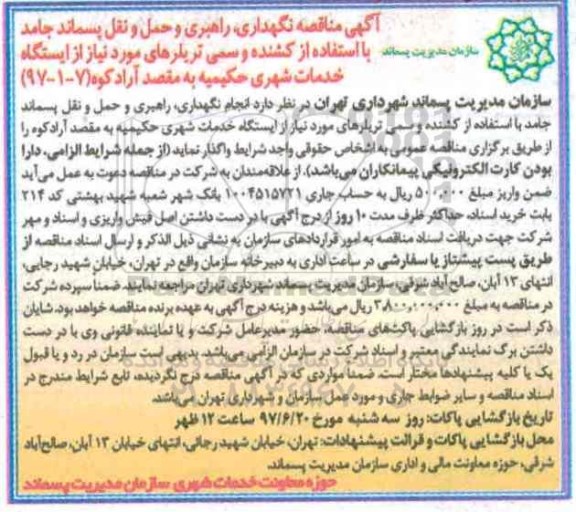 آگهی مناقصه نگهداری، راهبری و حمل و نقل پسماند جامد
با استفاده از کشنده و سمی تریلرهای مورد نیاز از ایستگاه
خدمات شهری حکیمیه به مقصد آرادکوه (۷-۱-۹۷)
سازمان مدیریت پسماند
سازمان مدیریت پسماند شهرداری تهران در نظر دارد انجام نگهداری، راهبری و حمل و نقل پسماند
جامد با استفاده از کشنده و سمی تریلرهای مورد نیاز از ایستگاه خدمات شهری حکیمیه به مقصد آرادکوه را
از طریق برگزاری مناقصه عمومی به اشخاص حقوقی واجد شرایط واگذار نماید (از جمله شرایط الزامی، دارا
بودن کارت الکترونیکی پیمانکاران می‌باشد)، از علاقه‌مندان به شرکت در مناقصه دعوت به عمل می‌آید
ضمن واریز مبلغ ۵۰۰،۰۰۰ ریال به حساب جاری ۱۰۰۴۵۱۵۷۲۱ بانک شهر شعبه شهید بهشتی کد ۲۱۴
بابت خرید اسناد، حداکثر ظرف مدت ۱۰ روز از درج آگهی با در دست داشتن اصل فیش واریزی و اسناد و مهر
شرکت جهت دریافت اسناد مناقصه به امور قراردادهای سازمان به نشانی ذیل الذکر و ارسال اسناد مناقصه از
طریق پست پیشتاز یا سفارشی در ساعت اداری به دبیرخانه سازمان واقع در تهران، خیابان شهید رجایی،
انتهای ۱۳ آبان، صالح آباد شرقی، سازمان مدیریت پسماند شهرداری تهران مراجعه نمایند. ضمناً سپرده شرکت
در مناقصه به مبلغ ۳،۸۰۰،۰۰۰،۰۰۰ ریال می‌باشد و هزینه درج آگهی به عهده برنده مناقصه خواهد بود. شایان
ذکر است در روز بازگشایی پاکت‌های مناقصه، حضور مدیرعامل شرکت و یا نماینده قانونی وی با در دست
داشتن برگ نمایندگی معتبر و اسناد شرکت در سازمان الزامی می‌باشد. بدیهی است سازمان در رد و یا قبول
یک یا کلیه پیشنهادها مختار است. ضمناً مواردی که در آگهی مناقصه درج نگردیده، تابع شرایط مندرج در
اسناد مناقصه و سایر ضوابط جاری و مورد عمل سازمان و شهرداری تهران می‌باشد.
تاریخ بازگشایی پاکات: روز سه شنبه مورخ ۹۷/۶/۲۰ ساعت ۱۲ ظهر
محل بازگشایی پاکات و قرائت پیشنهادات: تهران، خیابان شهید رجائی، انتهای خیابان ۱۳ آبان، صالح‌آباد
شرقی، حوزه معاونت مالی و اداری سازمان مدیریت پسماند.
حوزه معاونت خدمات شهری سازمان مدیریت پسماند